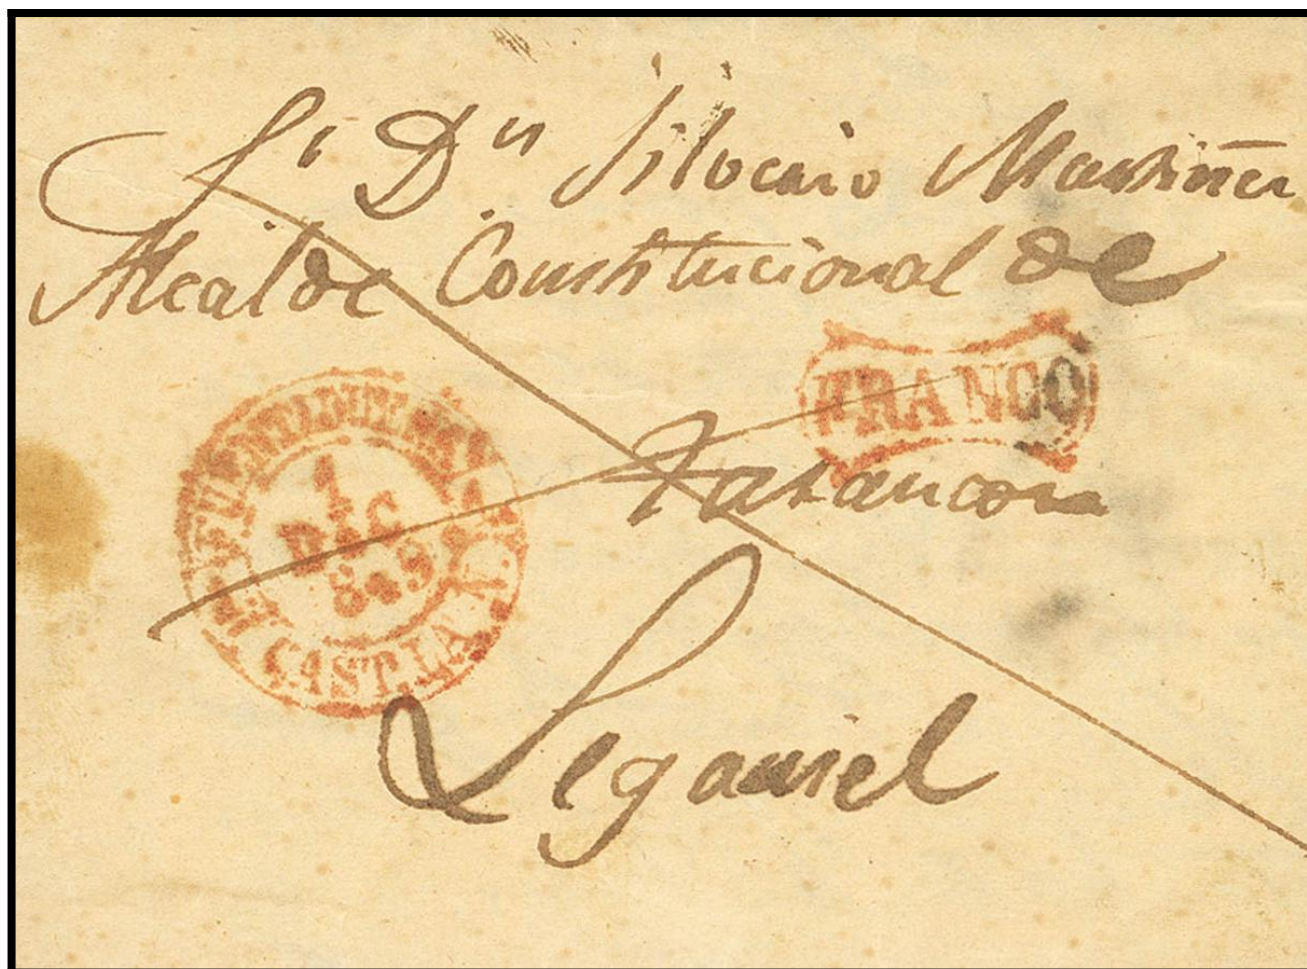 Sr Dn Silverio Martinez
Alcalde Constitucional de
FRANCO
Tarancon
1
DIC
849
CAST. LA N.
Leganiel